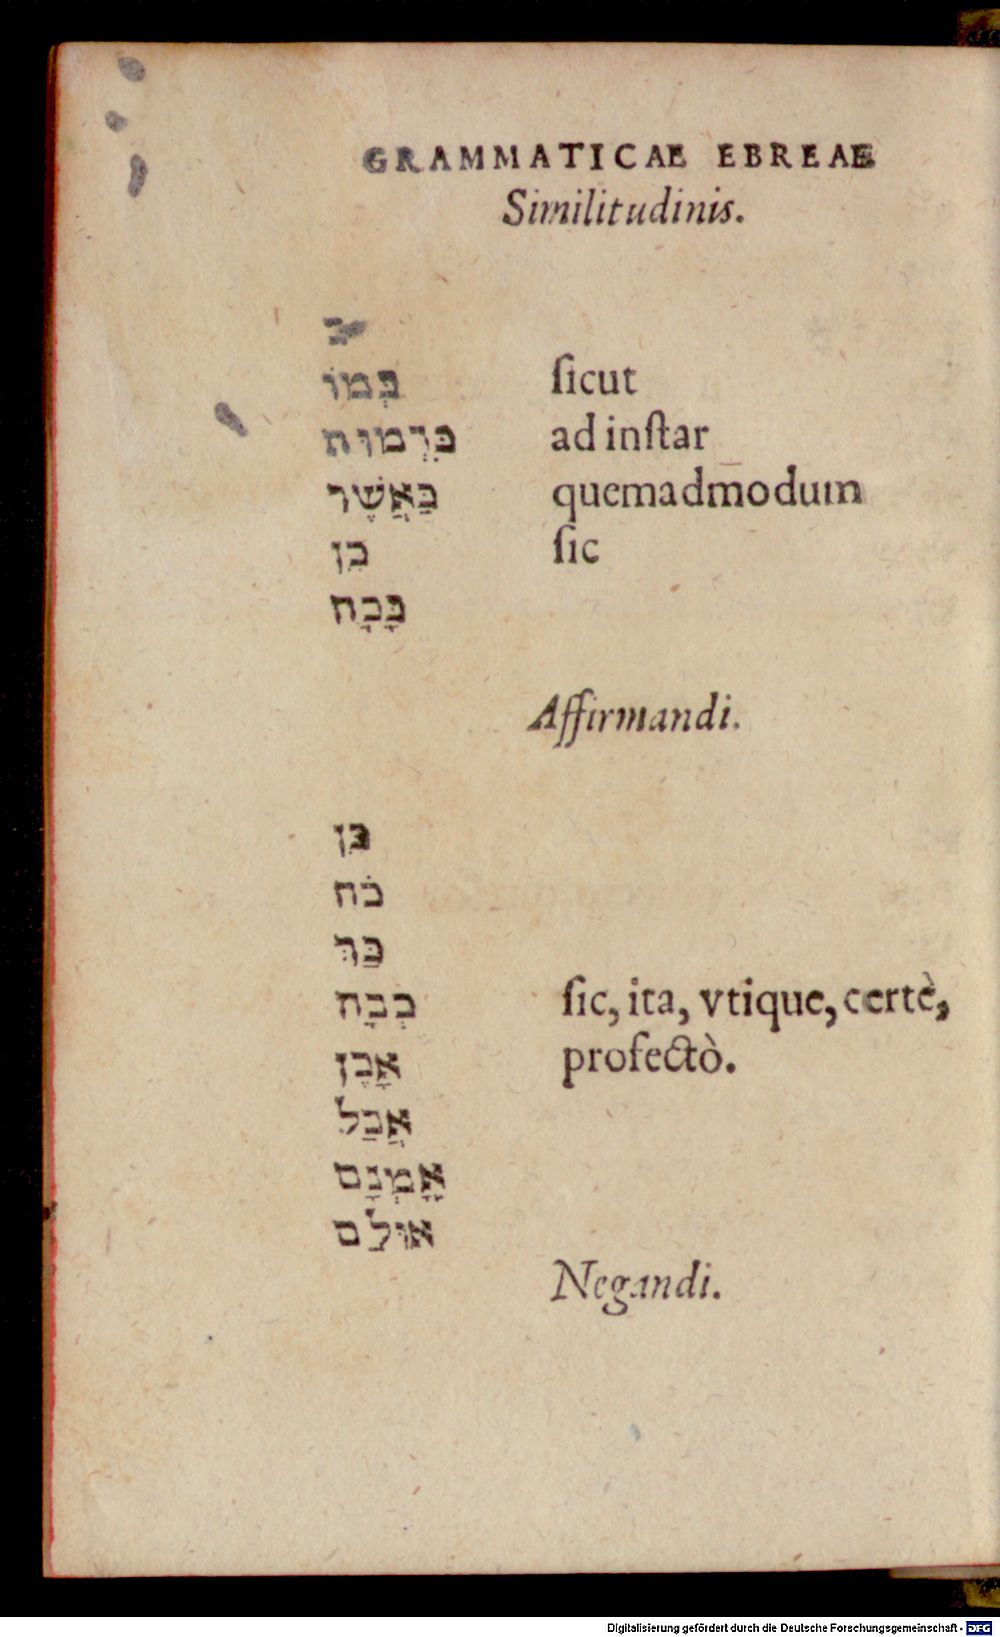 GRAMMATICAE EBREAE
Similitudinis.
כְּמוֹ ſicut
כִּדְמוּת ad inſtar
כַּאֲשֶׁר quemadmodum
כֵּן ſic
כָּכָה
Affirmandi.
כֵּן
כֹּה
כַּךְ
כְּכָה ſic, ita, vtique, certè,
אָכֵן profectò.
אֲבַל
אָמְנָם
אוּלַם
Negandi.
Digitalisierung gefördert durch die Deutsche Forschungsgemeinschaft - DFG